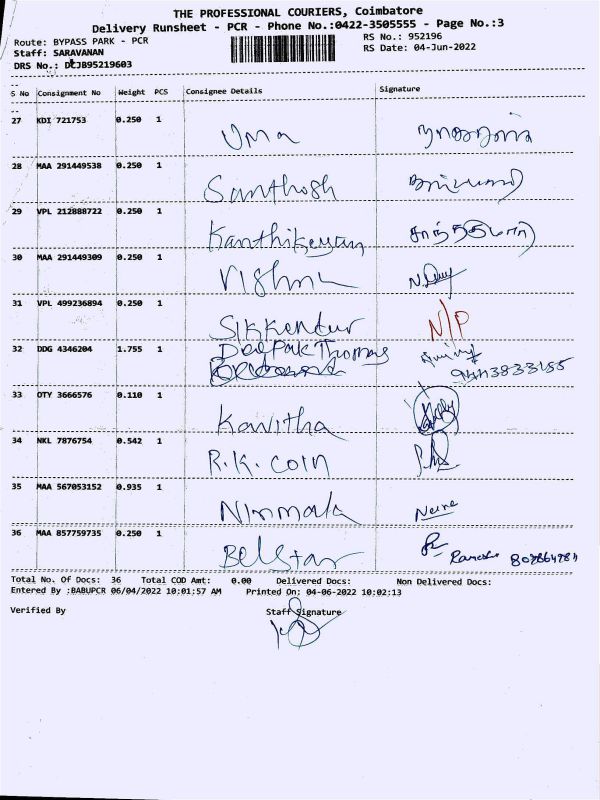 THE PROFESSIONAL COURIERS, Coimbatore
Delivery Runsheet - PCR - Phone No.:0422-3505555 - Page No.:3
Route: BYPASS PARK - PCR
RS No.: 952196
Staff: SARAVANAN
RS Date: 04-Jun-2022
DRS No.: DCJB95219603
S No Consignment No Weight PCS Consignee Details Signature
27 KDI 721753 0.250 1 Uma
28 MAA 291449538 0.250 1 Santhosh
29 VPL 212888722 0.250 1 Kanthikeyan
30 MAA 291449309 0.250 1 Vishnu
31 VPL 499236894 0.250 1 Sikkendur N/P
32 DDG 4346204 1.755 1 Deepak Thomas
33 OTY 3666576 0.110 1 Kavitha
34 NKL 7876754 0.542 1 R.K. Coin
35 MAA 567053152 0.935 1 Nirmala
36 MAA 857759735 0.250 1 Belstar Ramesh
Total No. Of Docs: 36 Total COD Amt: 0.00 Delivered Docs: Non Delivered Docs:
Entered By :BABUPCR 06/04/2022 10:01:57 AM Printed On: 04-06-2022 10:02:13
Verified By Staff Signature